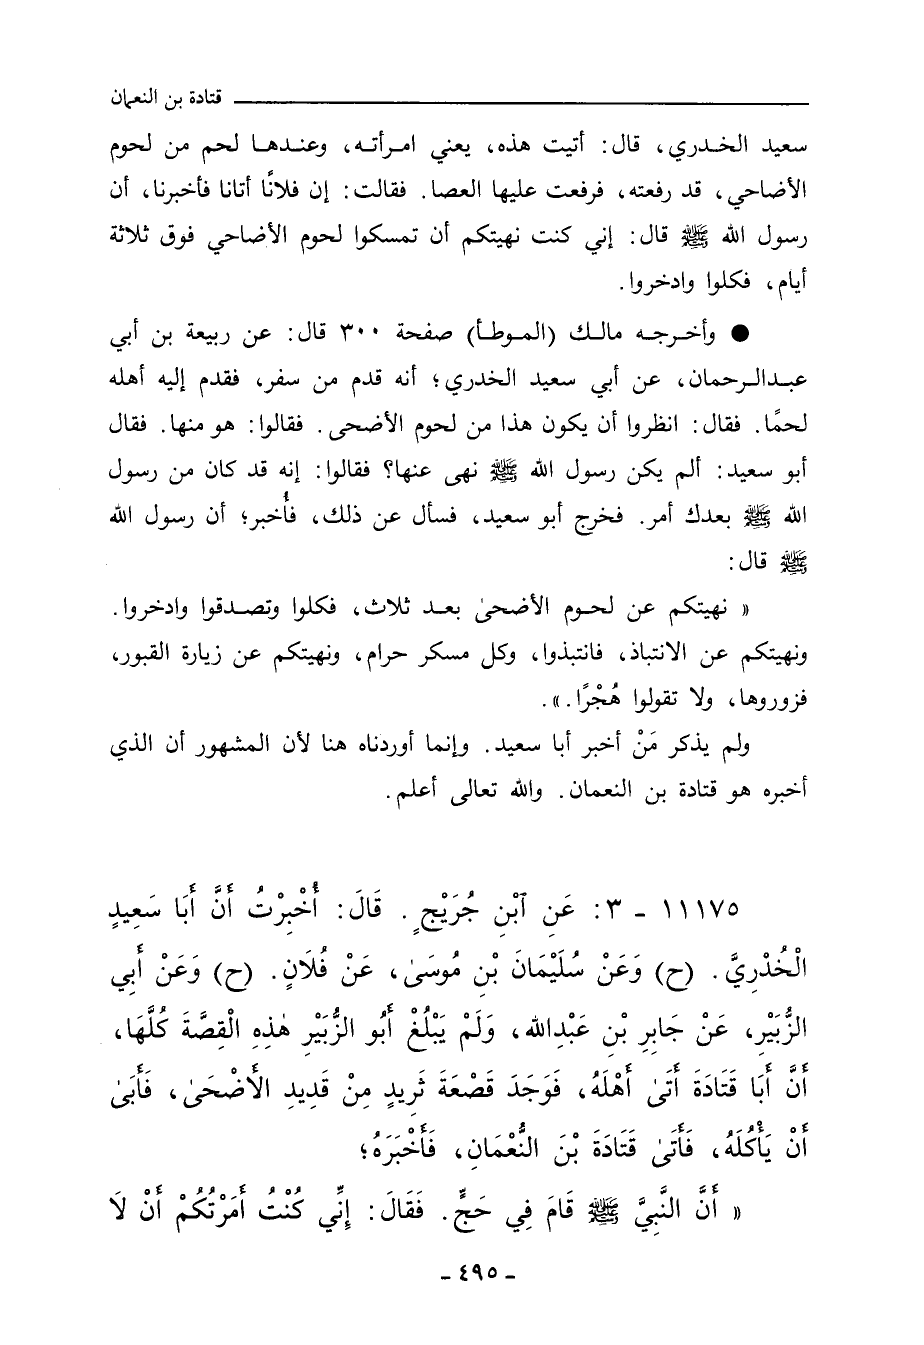 قتادة بن النعمان
سعيد الخدري، قال: أتيت هذه، يعني امرأته، وعندها لحم من لحوم
الأضاحي، قد رفعته، فرفعت عليها العصا. فقالت: إن فلانًا أتانا فأخبرنا، أن
رسول الله ﷺ قال: إني كنت نهيتكم أن تمسكوا لحوم الأضاحي فوق ثلاثة
أيام، فكلوا وادخروا.
● وأخرجه مالك (الموطأ) صفحة ٣٠٠ قال: عن ربيعة بن أبي
عبدالرحمان، عن أبي سعيد الخدري؛ أنه قدم من سفر، فقدم إليه أهله
لحمًا. فقال: انظروا أن يكون هذا من لحوم الأضحى. فقالوا: هو منها. فقال
أبو سعيد: ألم يكن رسول الله ﷺ نهى عنها؟ فقالوا: إنه قد كان من رسول
الله ﷺ بعدك أمر. فخرج أبو سعيد، فسأل عن ذلك، فأُخبر؛ أن رسول الله
ﷺ قال:
« نهيتكم عن لحوم الأضحىٰ بعد ثلاث، فكلوا وتصدقوا وادخروا.
ونهيتكم عن الانتباذ، فانتبذوا، وكل مسكر حرام، ونهيتكم عن زيارة القبور،
فزوروها، ولا تقولوا هُجْرًا.».
ولم يذكر مَنْ أخبر أبا سعيد. وإنما أوردناه هنا لأن المشهور أن الذي
أخبره هو قتادة بن النعمان. والله تعالى أعلم.
١١١٧٥ - ٣: عَنِ ٱبْنِ جُرَيْجٍ. قَالَ: أُخْبِرْتُ أَنَّ أَبَا سَعِيدٍ
الْخُدْرِيَّ. (ح) وَعَنْ سُلَيْمَانَ بْنِ مُوسَىٰ، عَنْ فُلَانٍ. (ح) وَعَنْ أَبِي
الزُّبَيْرِ، عَنْ جَابِرِ بْنِ عَبْدِالله، وَلَمْ يَبْلُغْ أَبُو الزُّبَيْرِ هٰذِهِ الْقِصَّةَ كُلَّهَا،
أَنَّ أَبَا قَتَادَةَ أَتَىٰ أَهْلَهُ، فَوَجَدَ قَصْعَةَ ثَرِيدٍ مِنْ قَدِيدِ الأَضْحَىٰ، فَأَبَىٰ
أَنْ يَأْكُلَهُ، فَأَتَىٰ قَتَادَةَ بْنَ النُّعْمَانِ، فَأَخْبَرَهُ؛
« أَنَّ النَّبِيَّ ﷺ قَامَ فِي حَجٍّ. فَقَالَ: إِنِّي كُنْتُ أَمَرْتُكُمْ أَنْ لَا
- ٤٩٥ -